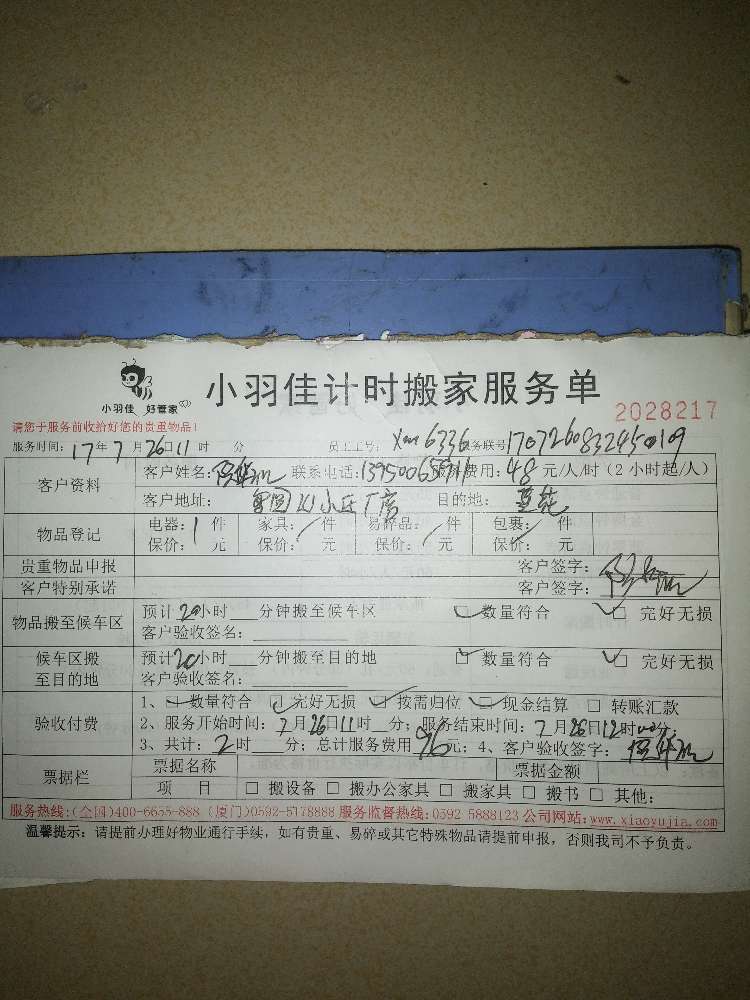 小羽佳 好管家
小羽佳计时搬家服务单
2028217
请您于服务前收给好您的贵重物品!
服务时间:17年7月26日11时 分 员工工号:Xm6336 服务联号1707260832450109
客户资料 客户姓名: 联系电话:13950065711 服务费用:48元/人/时(2小时起/人)
客户地址: 目的地:
物品登记 电器:1件 家具:/件 易碎品:/件 包裹:/件
保价: 元 保价: 元 保价: 元 保价: 元
贵重物品申报 客户签字:
客户特别承诺 客户签字:
物品搬至候车区 预计20小时 分钟搬至候车区 ☑数量符合 ☑完好无损
客户验收签名:
候车区搬至目的地 预计20小时 分钟搬至目的地 ☑数量符合 ☑完好无损
客户验收签名:
验收付费 1、☑数量符合 ☑完好无损 ☑按需归位 ☑现金结算 □转账汇款
2、服务开始时间:7月26日11时 分;服务结束时间:7月26日12时00分
3、共计:2时 分;总计服务费用96元;4、客户验收签字:
票据栏 票据名称 票据金额
项 目 □搬设备 □搬办公家具 □搬家具 □搬书 □其他:
服务热线:(全国)400-6655-888 (厦门)0592-5178888 服务监督热线:0592 5888123 公司网站:www.xiaoyujia.com
温馨提示:请提前办理好物业通行手续,如有贵重、易碎或其它特殊物品请提前申报,否则我司不予负责。